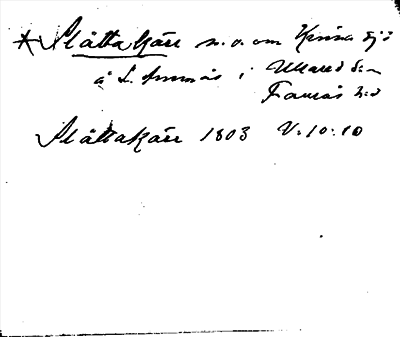 * Slåttakärr n.o. om Kinna sjö
å L. i Ullared s:n
Faurås h:d
Slåttakärr 1803 V:10:10